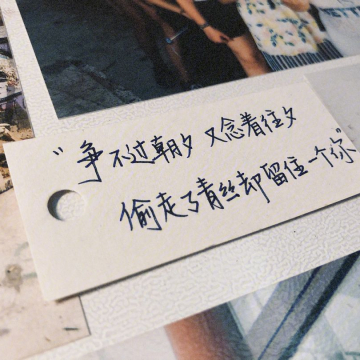 "争不过朝夕 又念着往夕
偷走了青丝却留住一个你"